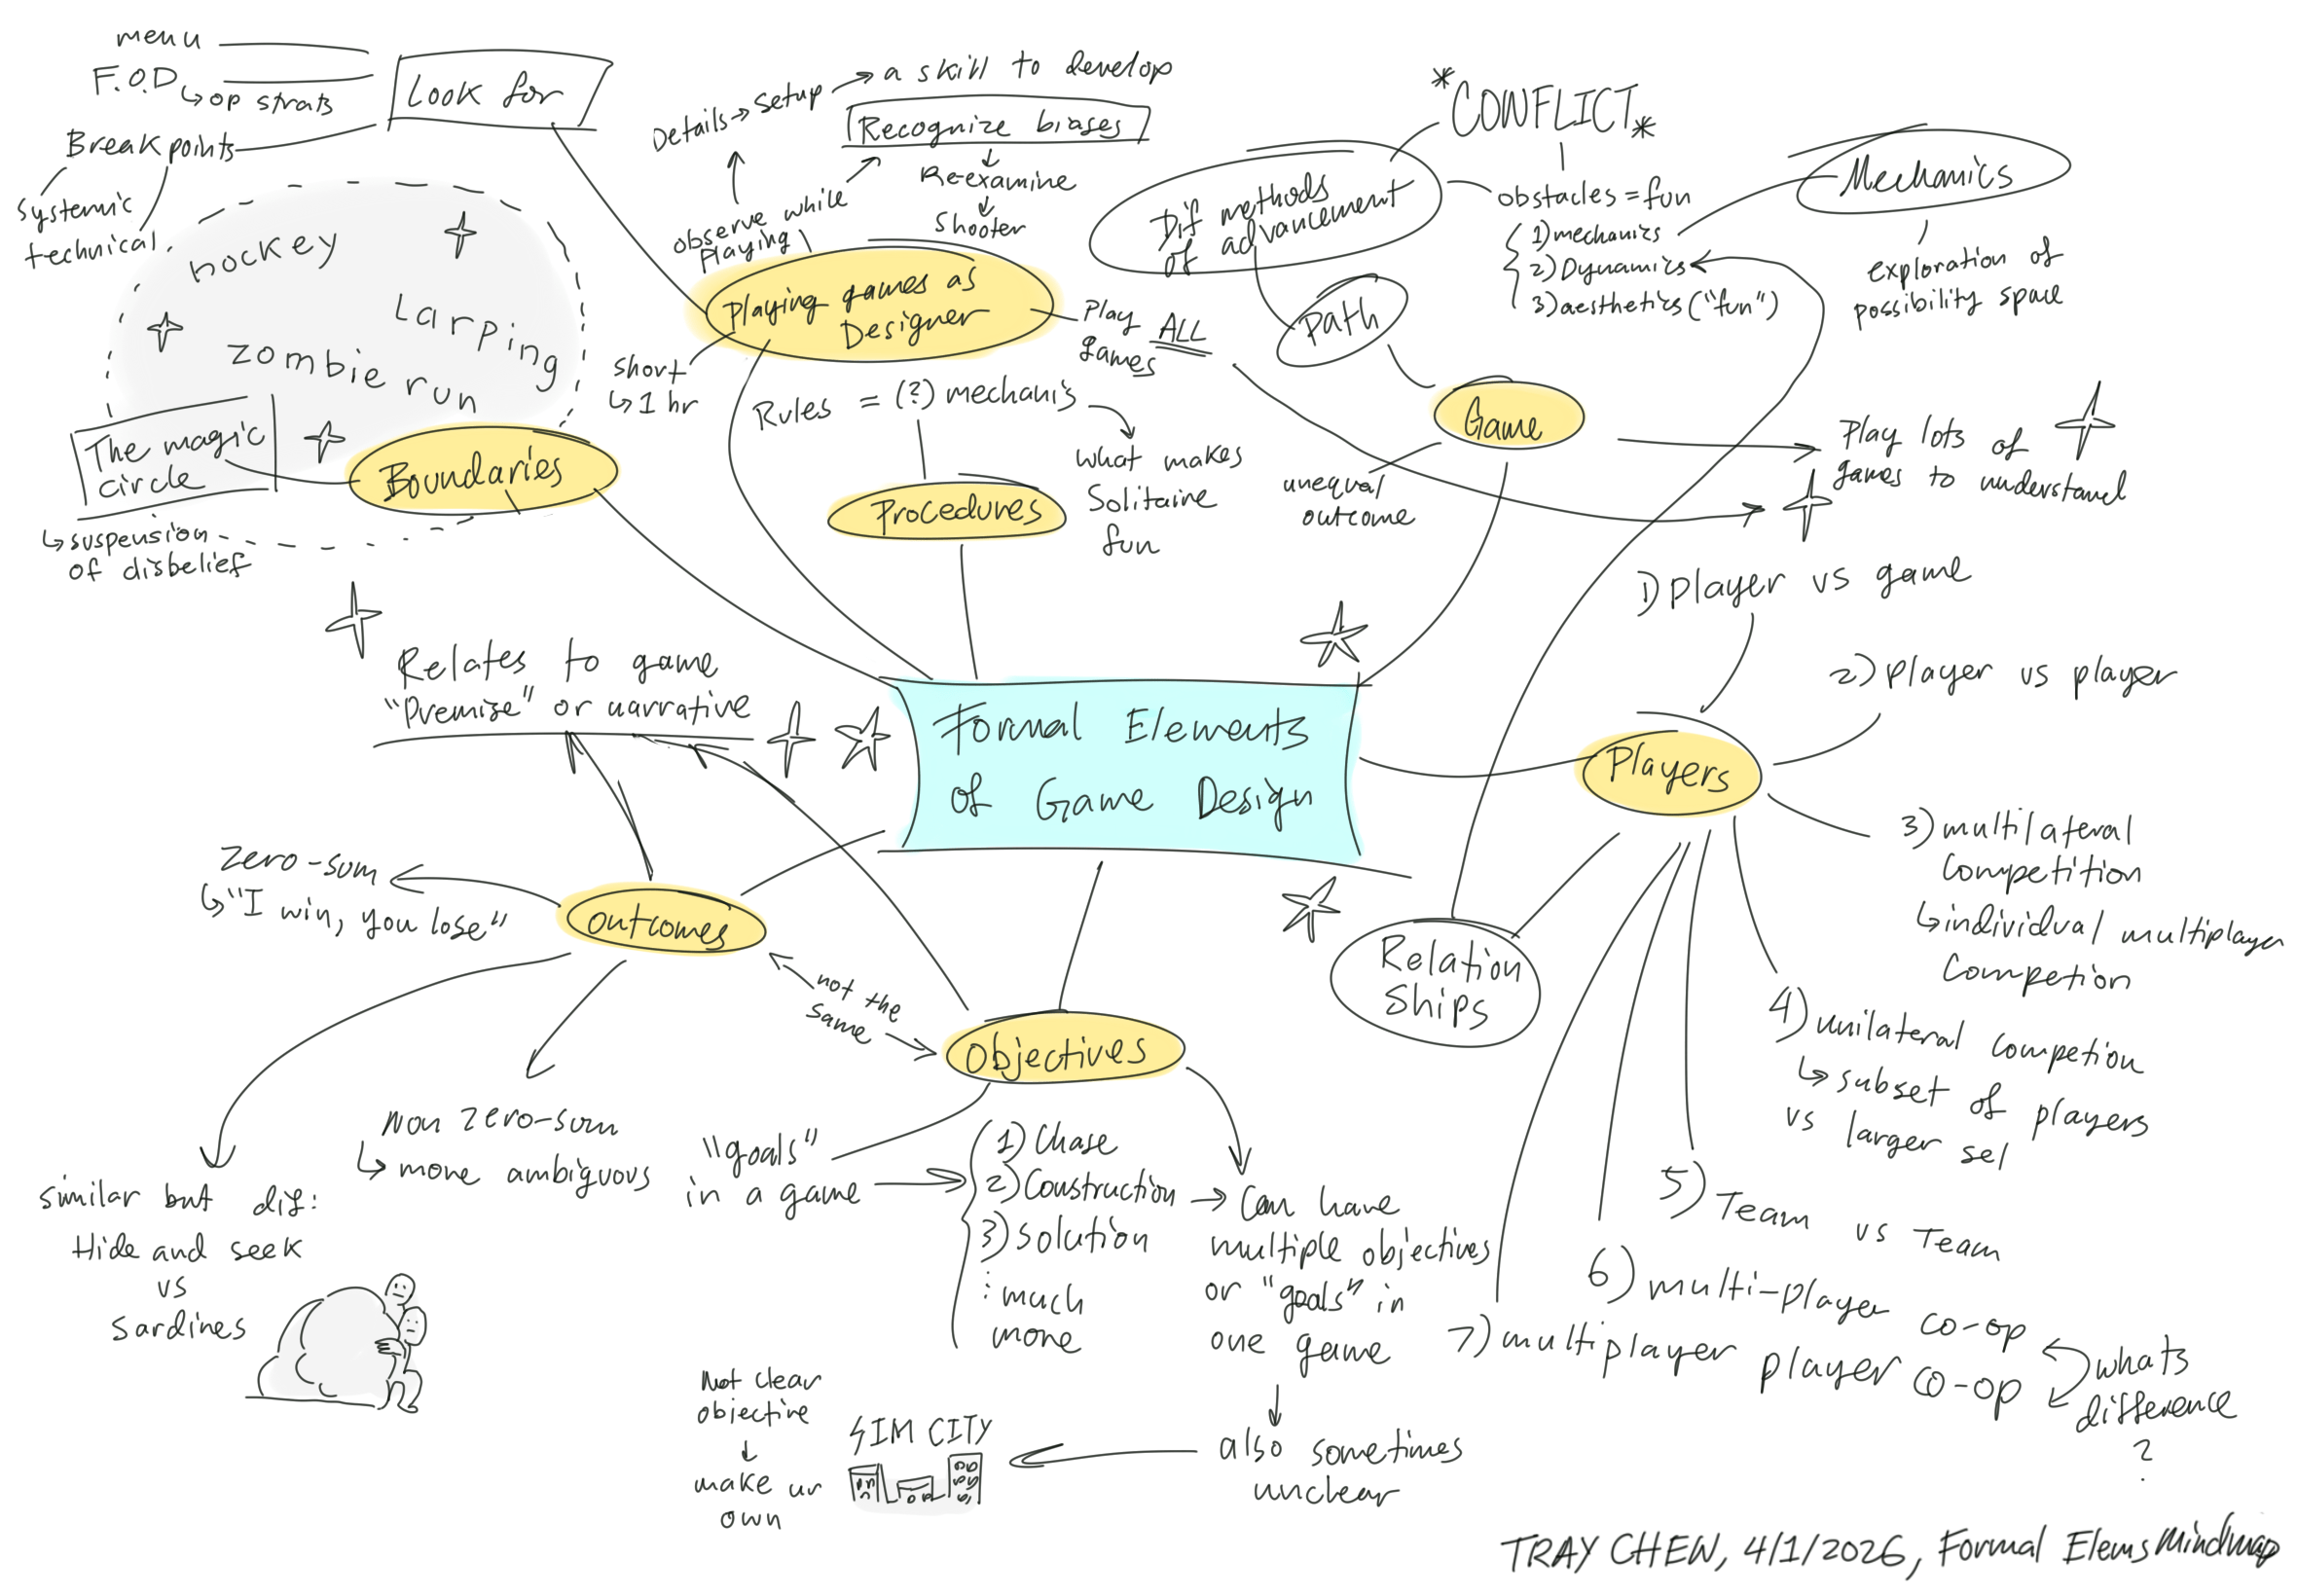 menu
F.O.D
↳ op strats
Break points
systemic
technical
Look for
Details → setup → a skill to develop
Recognize biases
Re-examine
Shooter
observe while
playing
Playing games as
Designer
short
↳ 1 hr
Play
games ALL
hockey
Larping
zombie run
The magic
circle
↳ suspension
of disbelief
Boundaries
Rules = (?) mechanis
what makes
Solitaire
fun
Procedures
*CONFLICT*
Dif methods
of advancement
obstacles = fun
1) mechanics
2) Dynamics
3) aesthetics ("fun")
Mechanics
exploration of
possibility space
Path
Game
unequal
outcome
Play lots of
games to understand
Formal Elements
of Game Design
Relates to game
"Premise" or narrative
1) player vs game
2) player vs player
Players
3) multilateral
competition
↳ individual multiplayer
competion
4) unilateral competion
↳ subset of players
vs larger set
5) Team vs Team
6) multi-player co-op
7) multiplayer player co-op
whats
difference
?
Relation
ships
outcomes
zero-sum
↳ "I win, you lose"
Non zero-sum
↳ more ambiguous
similar but dif:
Hide and seek
vs
sardines
not the
same
Objectives
"goals"
in a game
1) Chase
2) Construction
3) solution
⋮ much
more
Can have
multiple objectives
or "goals" in
one game
also sometimes
unclear
SIM CITY
Not clear
objective
make ur
own
TRAY CHEW, 4/1/2026, Formal Elems Mindmap